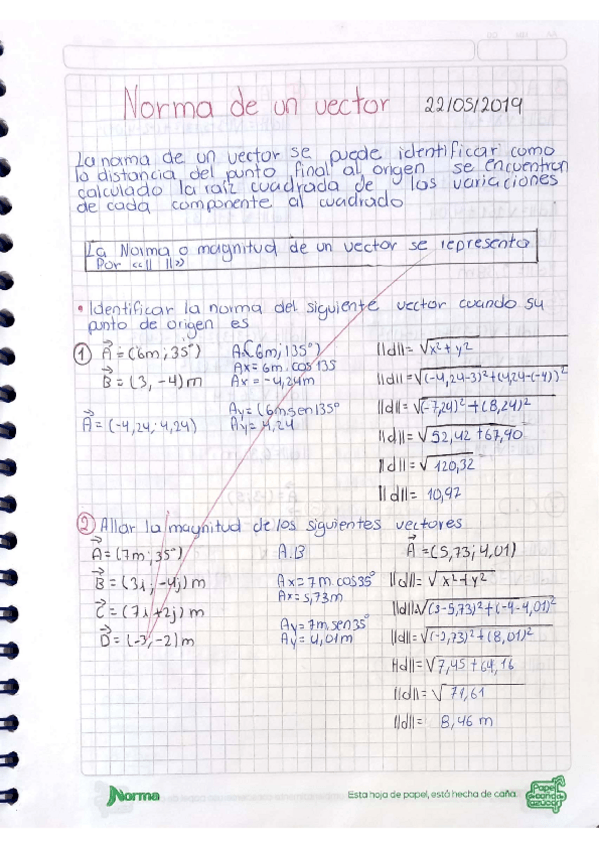 Norma de un vector 22/05/2019
La noma de un vector se puede identificar como
la distancia del punto final al origen se encuentran
calculado la raíz cuadrada de las variaciones
de cada componente al cuadrado
La Norma o magnitud de un vector se representa
Por "|| ||"
• Identificar la norma del siguiente vector cuando su
punto de origen es
① A = (6m; 35°)
B = (3, -4)m
A = (-4,24; 4,24)
A(6m; 135°)
Ax = 6m. cos 135
Ax = -4,24m
Ay = (6m sen 135°
Ay = 4,24
||d|| = √x²+y²
||d|| = √(-4,24-3)²+(4,24-(-4))²
||d|| = √(-7,24)²+(8,24)²
||d|| = √52,42+67,90
||d|| = √120,32
||d|| = 10,92
② Allar la magnitud de los siguientes vectores
A = (7m; 35°)
B = (3i; -4j)m
C = (7i+2j)m
D = (-3, -2)m
A.B
Ax = 7m.cos35°
Ax = 5,73m
Ay = 7m.sen35°
Ay = 4,01m
A = (5,73; 4,01)
||d|| = √x²+y²
||d|| √(3-5,73)²+(-4-4,01)²
||d|| = √(-2,73)²+(8,01)²
||d|| = √7,45+64,16
||d|| = √71,61
||d|| = 8,46 m
Norma
Esta hoja de papel, está hecha de caña.
Papel de caña de azúcar